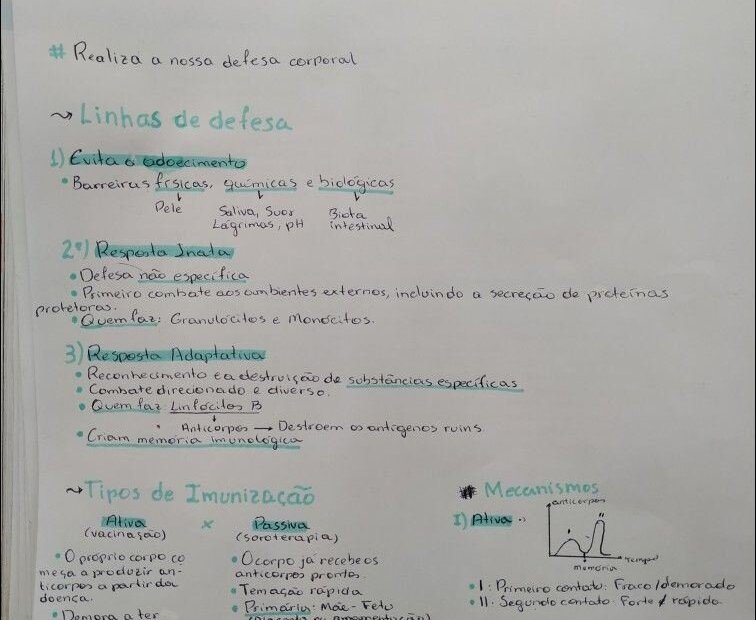 # Realiza a nossa defesa corporal
~ Linhas de defesa
1) Evita o adoecimento
• Barreiras físicas, químicas e biológicas
Pele
Saliva, Suor
Lágrimas, pH
Biota
intestinal
2º) Resposta Inata
• Defesa não específica
• Primeiro combate aos ambientes externos, incluindo a secreção de proteínas
protetoras.
• Quem faz: Granulócitos e Monócitos.
3) Resposta Adaptativa
• Reconhecimento e a destruição de substâncias específicas
• Combate direcionado e diverso.
• Quem faz: Linfócitos B
• Anticorpos → Destroem os antígenos ruins
• Criam memória imunológica
~ Tipos de Imunização
Ativa x Passiva
(vacinação) (soroterapia)
• O próprio corpo co
meça a produzir an-
ticorpos a partir da
doença.
• Demora a ter
• O corpo já recebe os
anticorpos prontos.
• Tem ação rápida
• Primária: Mãe-Feto
# Mecanismos
I) Ativa
anticorpos
I
II
tempo
memória
• I: Primeiro contato: Fraco/demorado
• II: Segundo contato: Forte/rápido